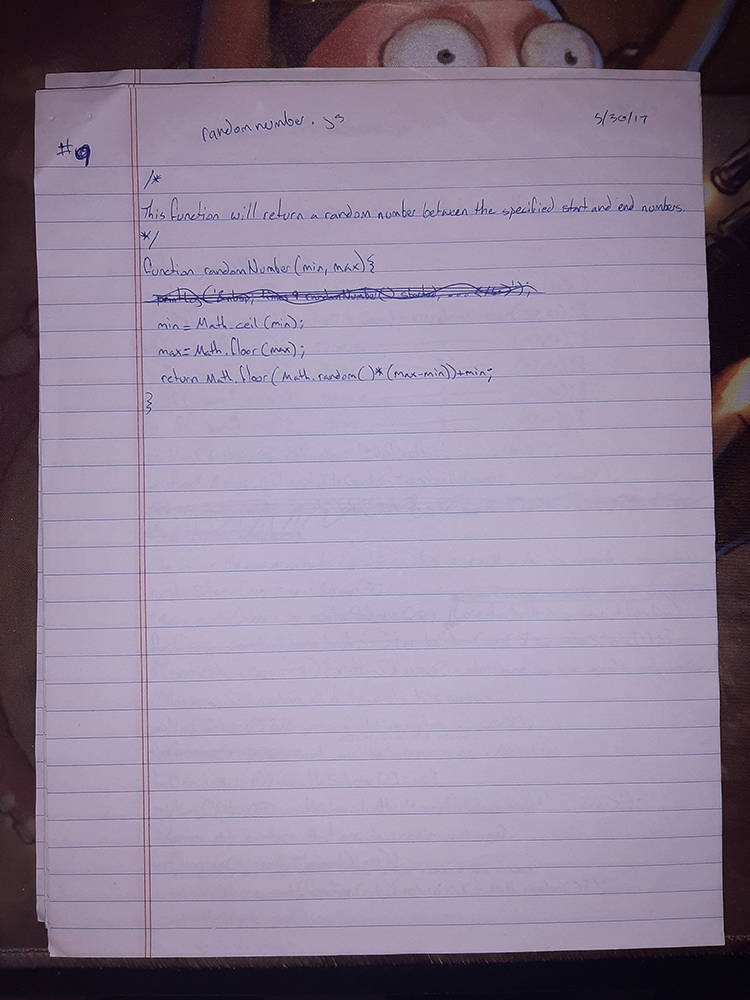 randomnumber.js
5/30/17
#9
/*
This function will return a random number between the specified start and end numbers.
*/
function randomNumber(min, max){
min = Math.ceil(min);
max = Math.floor(max);
return Math.floor(Math.random()*(max-min))+min;
}